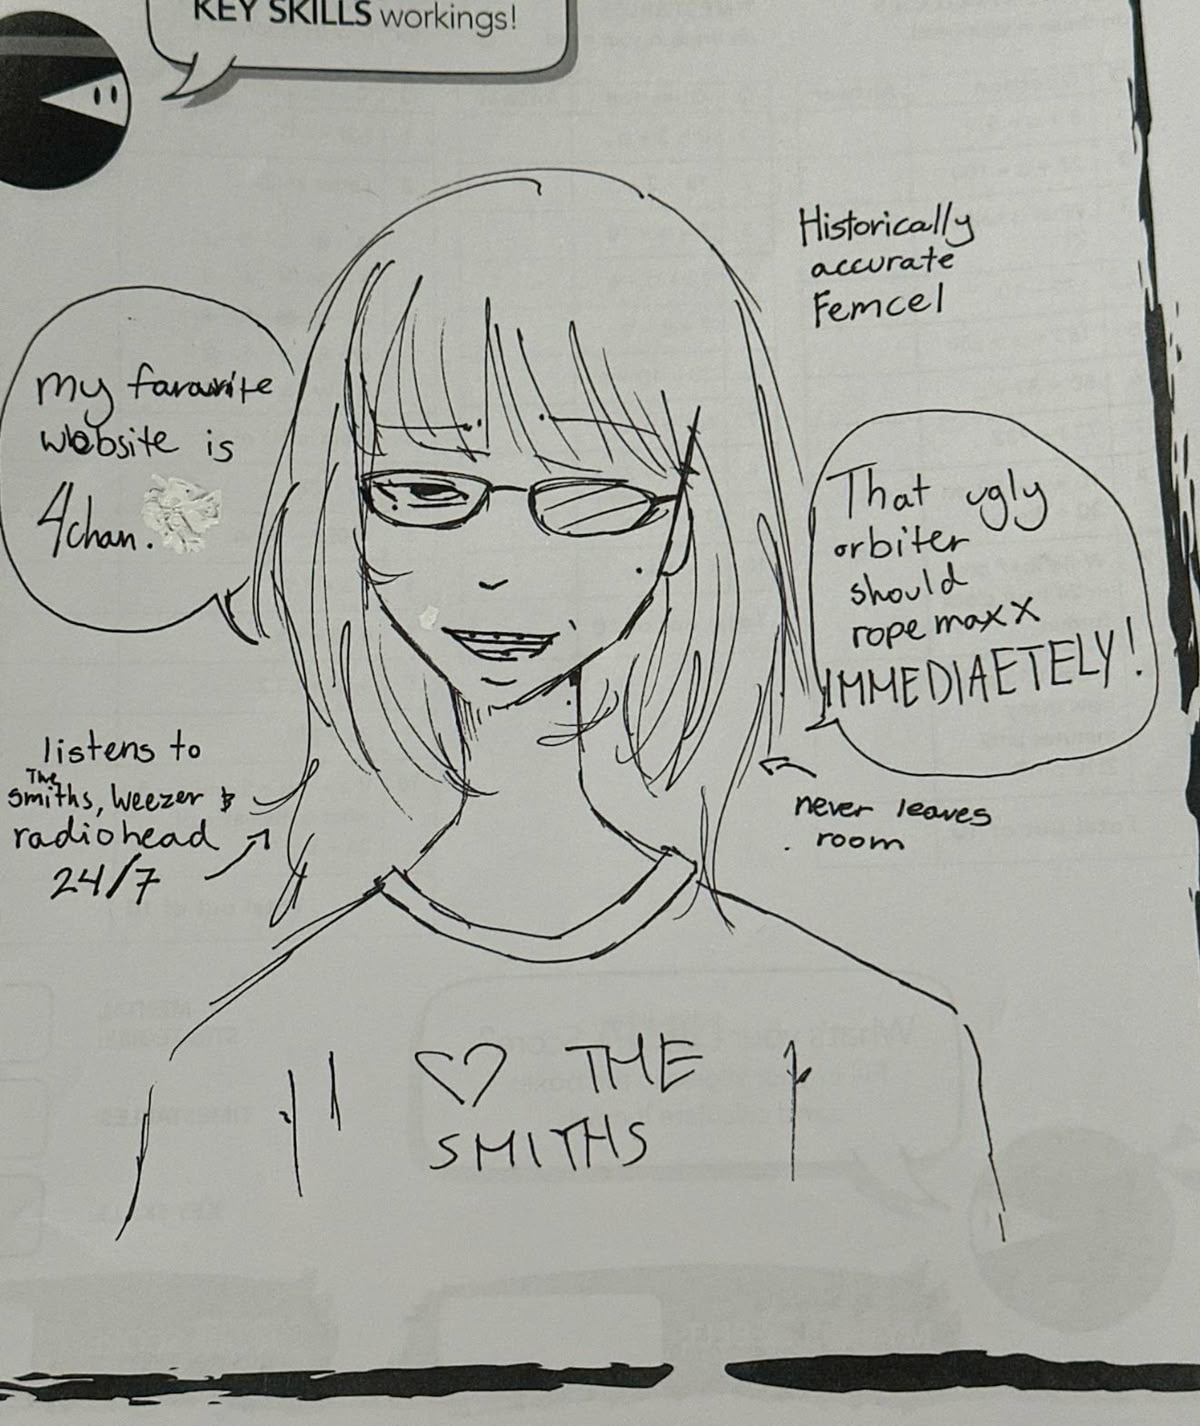 KEY SKILLS workings!
Historically
accurate
Femcel
my favourite
website is
4chan.
That ugly
orbiter
should
ropemaxx
IMMEDIAETELY!
listens to
The
smiths, Weezer &
radiohead
24/7
never leaves
room
♡ THE
SMITHS